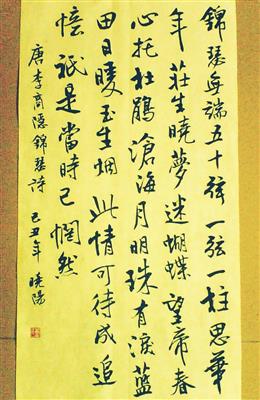 錦瑟無端五十弦一弦一柱思華
年莊生曉夢迷蝴蝶望帝春
心托杜鵑滄海月明珠有淚藍
田日暖玉生烟此情可待成追
憶祇是當時已惘然
唐李商隱錦瑟詩 己丑年 曉陽